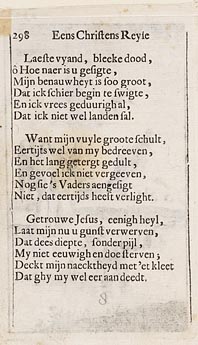 298 Eens Christens Reyse
Laeste vyand, bleeke dood,
ô Hoe naer is u gesigte,
Mijn benauwheyt is soo groot,
Dat ick schier begin te swigte,
En ick vrees geduurigh al,
Dat ick niet wel landen sal.
Want mijn vuyle groote schult,
Eertijts wel van my bedreeven,
En het lang getergt gedult,
En gevoel ick niet vergeeven,
Nog sie 's Vaders aengesigt
Niet, dat eertijds heeft verligt.
Getrouwe Jesus, eenigh heyl,
Laat mijn nu u gunst verwerven,
Dat dees diepte, sonder pijl,
My niet eeuwigh en doe sterven;
Deckt mijn naecktheyd met 'et kleet
Dat ghy my wel eer aan deedt.